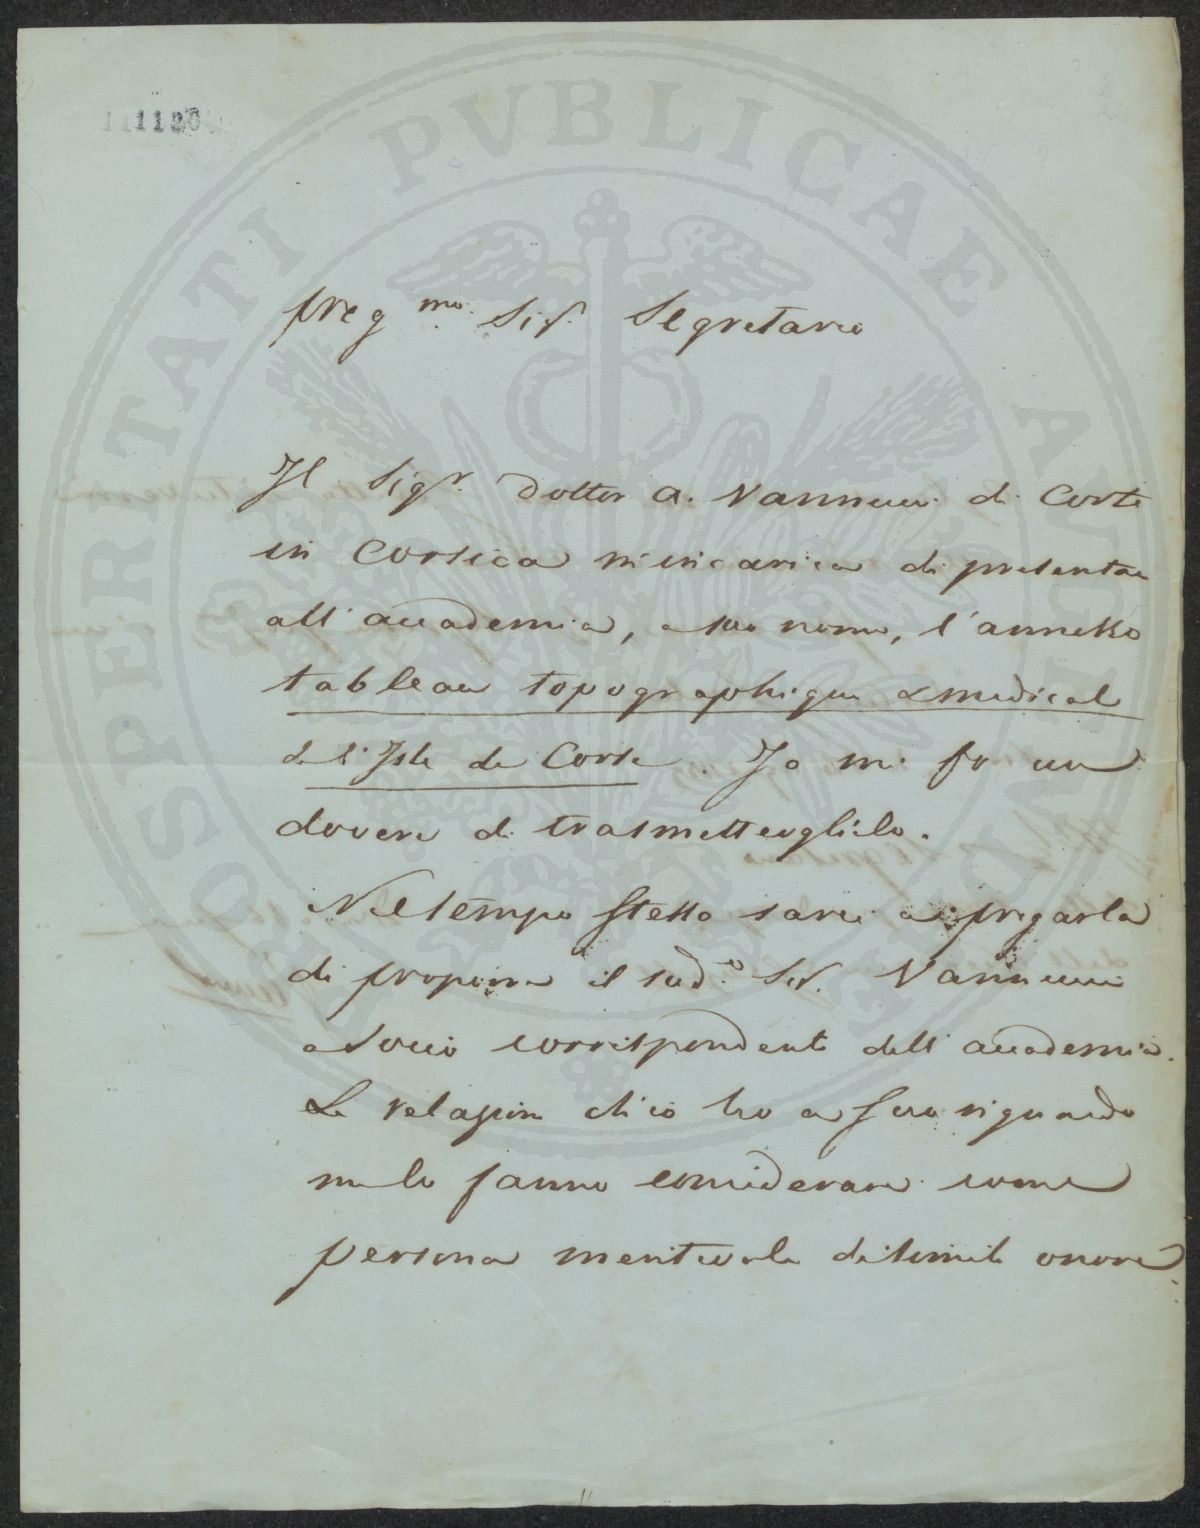 111120
PROSPERITATI PVBLICAE AVGENDAE
Preg.mo Sig.r Segretario
Il Sig.r Dottor A. Vannucci di Corte
in Corsica m'incarica di presentare
all'accademia, a suo nome, l'annesso
tableau topographique et medical
de l'Isle de Corse. Io mi fo un
dovere di trasmetterglielo.
Nel tempo stesso sarei a pregarla
di proporre il sud.o Sig. Vannucci
a Socio corrispondente dell'accademia.
Le relazioni ch'io ho a suo riguardo
me lo fanno considerare come
persona meritevole di simile onore.